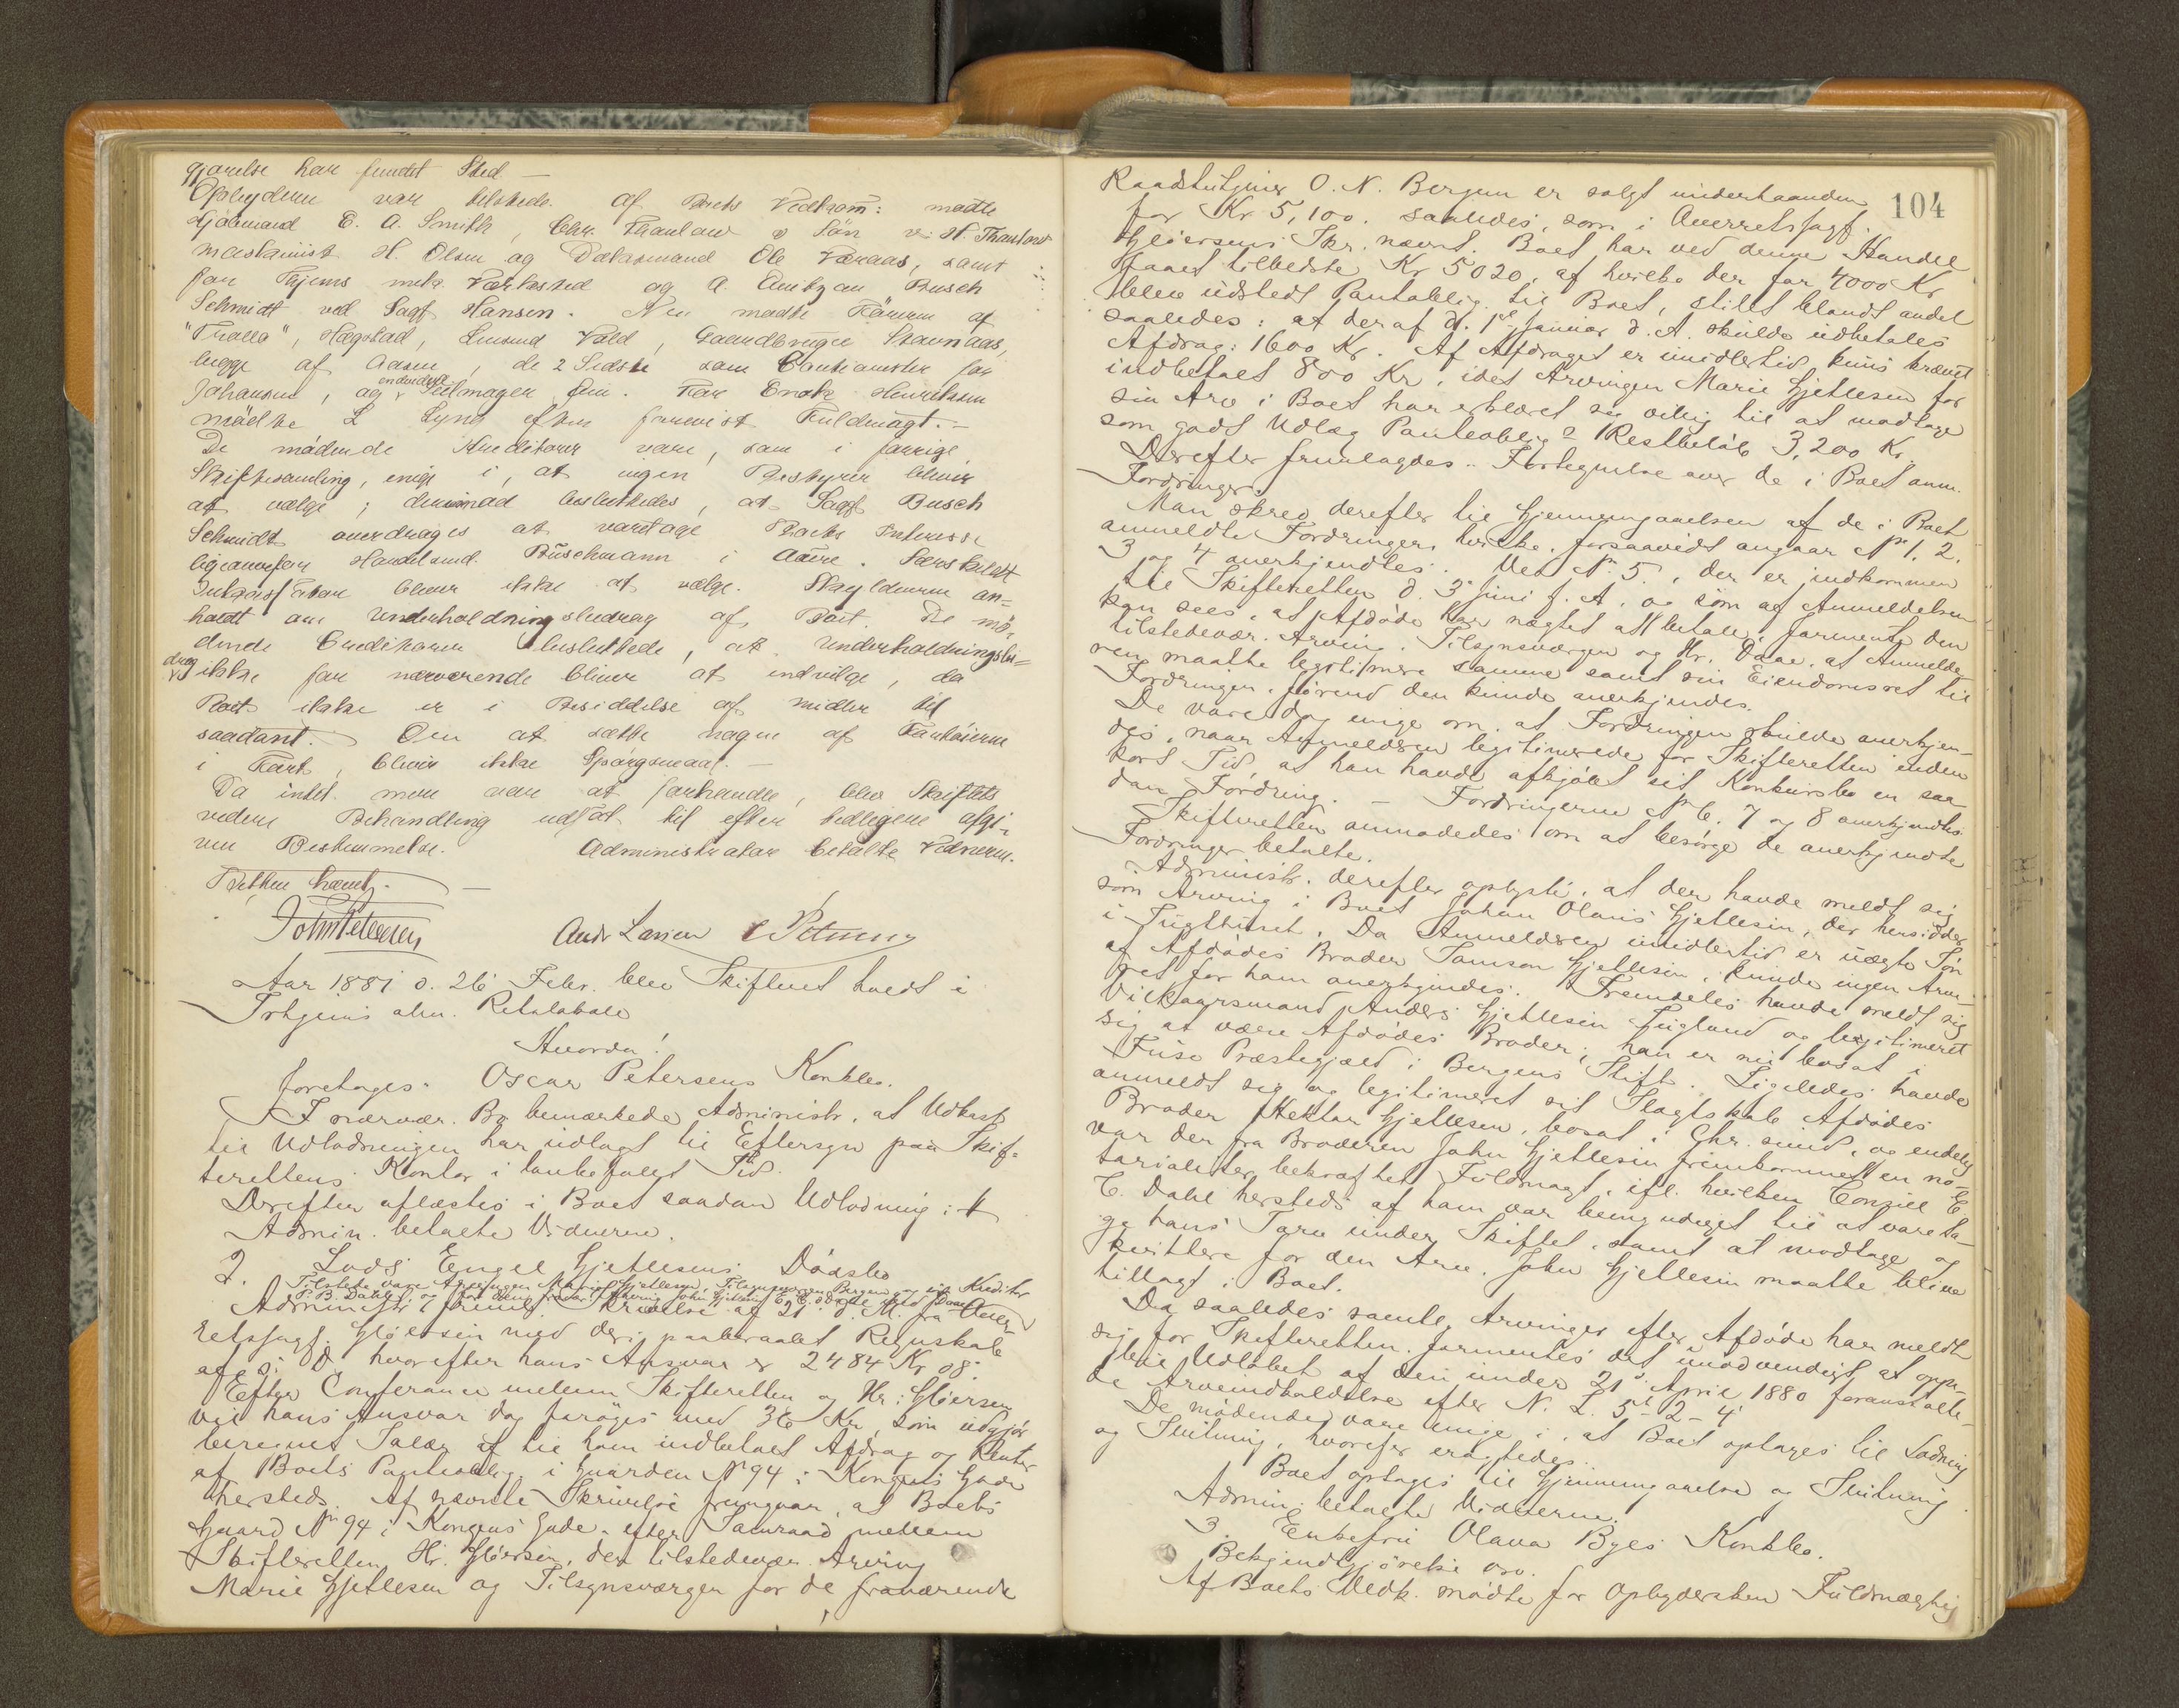 gjørelse har fundet Sted —
Opbyderen var tilstede. Af Boets Vedkom: mødte
E. A. Smith, Chr. Thaulow & Søn v: H. Thaulow
Maskinist H. Olsen og Ole Væraas, samt
for Thjems mek. Værksted og A. Busch
Schmidt ved Sagf. Hansen. Nu mødte af
"Tralla", Hægstad, Vold, Gaardbruger Stavnaas,
af Aasen, de 2 Sidste som Cautionister for
Johansen, og endvidere Seilmager . For Enoch Henriksen
mødte L Lyng efter Fuldmagt. —
De mødende Kreditorer vare, som i forrige
Skiftesamling, enige i, at ingen Bestyrer bliver
at vælge; derimod besluttedes, at Sagf. Busch
Schmidt overdrages at varetage Boets Interesse
ligeoverfor Handelsmd. Büschmann i Aure. Særskildt
Inkassator bliver ikke at vælge. Skyldneren an=
holdt om Underholdningsbidrag af Boet. De mø=
dende Creditorer besluttede, at Underholdningsbi=
drag ikke for nærværende bliver at indvilge, da
Boet ikke er i Besiddelse af Midler til
saadant. Om at sætte nogen af Fartøierne
i Fart, bliver ikke Spørgsmaal. —
Da intet mere var at forhandle, blev Skiftets
videre Behandling udsat til efter tidligere afgi=
ven Bestemmelse. Administrator betalte Vidnerne.
Retten hævet. —
John Petersen Andr Larsen C Petersen
Aar 1881 d. 26 Febr. blev Skifteret holdt i
Trhjems alm. Retslokale
Hvorda!
foretoges. Oscar Petersens Konkbo.
I nærvær. Bo bemærkede Administr. at Udkast
til Udlodningen har udlagt til Eftersyn paa Skif-
terettens Kontor i lovbefalet Tid.
Derefter aflæstes i Boet saadan Udlodning:
Admin. betalte Vidnerne.
2. Lods Engel Gjettesens Dødsbo
Tilstede vare Arvingen Marie Gjettesen, Tilsynsværgen Bergen og Kreditor
Administr. Skrivelse af 21 d. M. fra Over-
retssagf. Gløersen med deri paaberaabt Regnskab
af s: D. hvorefter hans Ansvar er 2484 Kr 08.
Efter Conferance mellem Skifteretten og Hr: Gløersen
vil hans Ansvar dog forøges med 36 Kr, som udgjør
beregnet Salær af til ham indbetalt Afdrag og Renter
af Boets Panteoblig. i Gaarden No 94 i Kongens Gade
hersteds. Af nævnte Skrivelse fremgaar, at Boets
Gaard No 94 i Kongens Gade efter Samraad mellem
Skifteretten, Hr. Gløersen, den tilstedevær. Arving
Marie Gjettesen og Tilsynsværgen for de fraværende
104
Raadstutjener O. N. Bergen er solgt underhaanden
for Kr 5,100. saaledes, som i Overretssagf.
Gløersens Skr. nævnt. Boet har ved denne Handel
faaet tilbedste Kr 5020, af hvilke der for 4000 Kr
blev udstedt Panteoblig. til Boet, stillt blandt andet
saaledes: at deraf d. 1st Januar d. A. skulde udbetales
Afdrag: 1600 Kr. Af Afdraget er imidlertid kuns krævet
indbetalt 800 Kr, idet Arvingen Marie Gjettesen for
sin Arv i Boet har erklæret sig villig til at modtage
som godt Udlæg Panteoblig Restbeløb 3,200 Kr.
Derefter fremlagdes Fortegnelse over de i Boet anm.
Fordringer.
Man skred derefter til Gjennemgaaelsen af de i Boet
anmeldte Fordringer, hvilke forsaavidt angaar No 1, 2,
3 og 4 anerkjendtes. Ved No 5, der er indkommen
til Skifteretten d. 3 Juni f. A. og som af Anmeldelsen
kan sees, at Afdøde har nægtet at betale, formente den
tilstedevær. Arving, Tilsynsværgen og Hr. Daae, at Anmelde-
ren maatte legitimere samme samt sin Eiendomsret til
Fordringen, førend den kunde anerkjendes.
De vare dog enige om, at Fordringen skulde anerkjen-
des, naar Anmelderen legitimerede for Skifteretten inden
kort Tid, at han havde afkjøbt sit Konkursbo en saa-
dan Fordring. — Fordringerne No 6, 7 og 8 anerkjendtes.
Skifteretten anmodedes om at besørge de anerkjendte
Fordringer betalte.
Administr. derefter oplyste, at der havde meldt sig
som Arving i Boet Johan Olaus Gjettesen, der hensidder
i Tugthuset. Da Anmelderen imidlertid er uægte Søn
af Afdødes Broder Samson Gjettesen, kunde ingen Arve-
ret for ham anerkjendes. Fremdeles havde meldt sig
Vilkaarsmand Anders Gjettesen Teigland og legitimeret
sig at være Afdødes Broder; han er nu bosat i
Fuse Præstegjæld i Bergens Stift. Ligeledes havde
anmeldt sig og legitimeret sit Slægtskab Afdødes
Broder Hektor Gjettesen, bosat i Chr.sund, og endelig
var der fra Broderen John Gjettesen fremkommet en no-
tarialiter bekræftet Fuldmagt, ifl. hvilken Consul E.
C. Dahl hersteds af ham var bemyndiget til at vareta-
ge hans Tarv under Skiftet, samt at modtage og
kvittere for den Arv, John Gjettesen maatte blive
tillagt i Boet.
Da saaledes samtl. Arvinger efter Afdøde har meldt
sig for Skifteretten, formentes det unødvendigt at oppe-
bie Udløbet af den under 21d April 1880 foranstalte-
de Arveindkaldelse efter N. L. 5-2-4
De mødende vare enige i, at Boet optages til Lodning
og Slutning, hvorefter eragtedes:
Boet optages til Gjennemgaaelse og Slutning.
Admin. betalte Vidnerne.
3. Enkefru Olava Byes Konkbo.
Bekjendtgjørelse osv.
Af Boets Vedk. mødte for Opbydersken Fuldmægtig